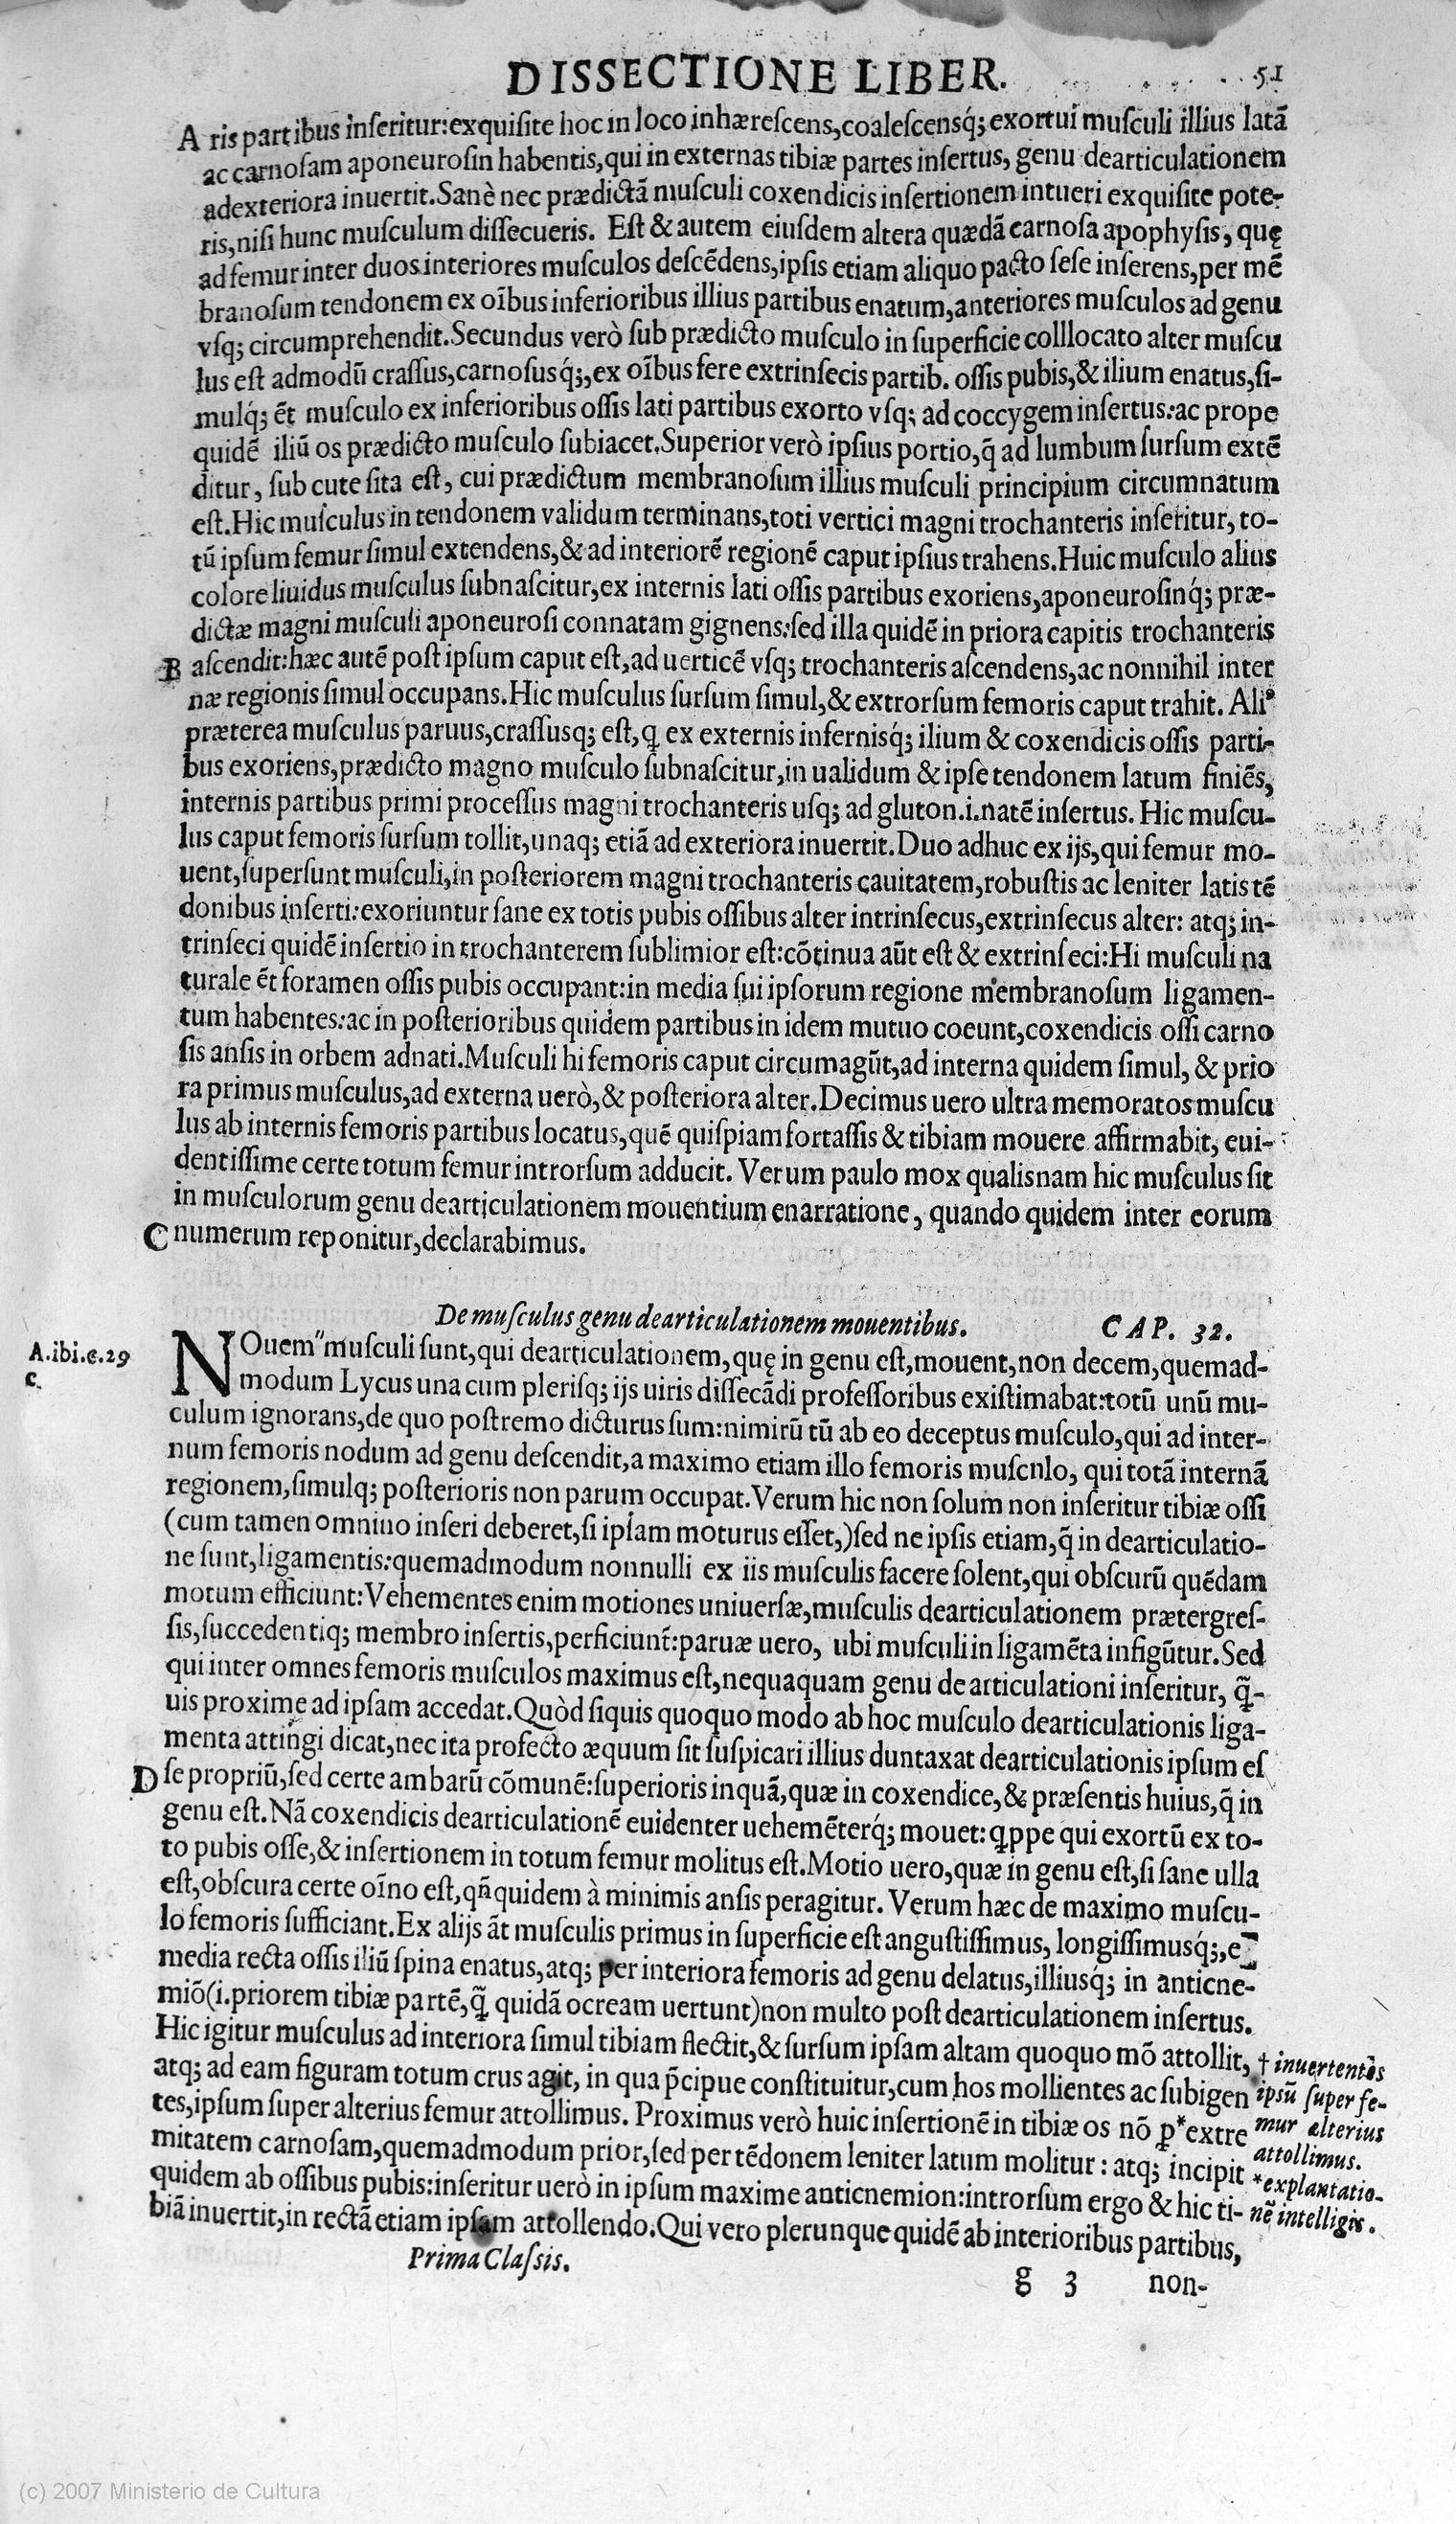 DISSECTIONE LIBER. 51
A ris partibus inſeritur:exquiſite hoc in loco inhæreſcens,coaleſcensq́;exortui muſculi illius latã
ac carnoſam aponeuroſin habentis,qui in externas tibiæ partes inſertus, genu dearticulationem
ad exteriora inuertit.Sanè nec prædictã muſculi coxendicis inſertionem intueri exquiſite pote-
ris,niſi hunc muſculum diſſecueris. Eſt & autem eiuſdem altera quædã carnoſa apophyſis, quę
ad femur inter duos interiores muſculos deſcẽdens,ipſis etiam aliquo pacto ſeſe inſerens,per mẽ
branoſum tendonem ex oĩbus inferioribus illius partibus enatum,anteriores muſculos ad genu
vſq; circumprehendit.Secundus verò ſub prædicto muſculo in ſuperficie colllocato alter muſcu
lus eſt admodũ craſſus,carnoſusq́;,ex oĩbus fere extrinſecis partib. oſſis pubis,& ilium enatus,ſi-
mulq́; ẽt muſculo ex inferioribus oſſis lati partibus exorto vſq; ad coccygem inſertus:ac prope
quidẽ iliũ os prædicto muſculo ſubiacet.Superior verò ipſius portio,q̃ ad lumbum ſurſum extẽ
ditur, ſub cute ſita eſt, cui prædictum membranoſum illius muſculi principium circumnatum
eſt.Hic muſculus in tendonem validum terminans,toti vertici magni trochanteris inſeritur, to-
tũ ipſum femur ſimul extendens,& ad interiorẽ regionẽ caput ipſius trahens.Huic muſculo alius
colore liuidus muſculus ſubnaſcitur,ex internis lati oſſis partibus exoriens,aponeuroſinq́; præ-
dictæ magni muſculi aponeuroſi connatam gignens:ſed illa quidẽ in priora capitis trochanteris
B aſcendit:hæc autẽ poſt ipſum caput eſt,ad uerticẽ vſq; trochanteris aſcendens,ac nonnihil inter
næ regionis ſimul occupans.Hic muſculus ſurſum ſimul,& extrorſum femoris caput trahit. Aliꝰ
præterea muſculus paruus,craſſusq; eſt,q ex externis infernisq́; ilium & coxendicis oſſis parti-
bus exoriens,prædicto magno muſculo ſubnaſcitur,in ualidum & ipſe tendonem latum finiẽs,
internis partibus primi proceſſus magni trochanteris uſq; ad gluton.i.natẽ inſertus. Hic muſcu-
lus caput femoris ſurſum tollit,unaq; etiã ad exteriora inuertit.Duo adhuc ex ijs,qui femur mo-
uent,ſuperſunt muſculi,in poſteriorem magni trochanteris cauitatem,robuſtis ac leniter latis tẽ
donibus inſerti:exoriuntur ſane ex totis pubis oſſibus alter intrinſecus,extrinſecus alter: atq; in-
trinſeci quidẽ inſertio in trochanterem ſublimior eſt:cõtinua aũt eſt & extrinſeci:Hi muſculi na
turale ẽt foramen oſſis pubis occupant:in media ſui ipſorum regione membranoſum ligamen-
tum habentes:ac in poſterioribus quidem partibus in idem mutuo coeunt,coxendicis oſſi carno
ſis anſis in orbem adnati.Muſculi hi femoris caput circumagũt,ad interna quidem ſimul, & prio
ra primus muſculus,ad externa uerò,& poſteriora alter.Decimus uero ultra memoratos muſcu
lus ab internis femoris partibus locatus,quẽ quiſpiam fortaſſis & tibiam mouere affirmabit, eui-
dentiſſime certe totum femur introrſum adducit. Verum paulo mox qualisnam hic muſculus ſit
in muſculorum genu dearticulationem mouentium enarratione, quando quidem inter eorum
C numerum reponitur,declarabimus.
De muſculus genu dearticulationem mouentibus. CAP. 32.
A.ibi.e.29
c.
NOuem"muſculi ſunt,qui dearticulationem,quę in genu eſt,mouent,non decem,quemad-
modum Lycus una cum pleriſq; ijs uiris diſſecãdi profeſſoribus exiſtimabat:totũ unũ mu-
culum ignorans,de quo poſtremo dicturus ſum:nimirũ tũ ab eo deceptus muſculo,qui ad inter-
num femoris nodum ad genu deſcendit,a maximo etiam illo femoris muſcnlo, qui totã internã
regionem,ſimulq; poſterioris non parum occupat.Verum hic non ſolum non inſeritur tibiæ oſſi
(cum tamen omnino inſeri deberet,ſi ipſam moturus eſſet,)ſed ne ipſis etiam,q̃ in dearticulatio-
ne ſunt,ligamentis:quemadmodum nonnulli ex iis muſculis facere ſolent,qui obſcurũ quẽdam
motum efficiunt:Vehementes enim motiones uniuerſæ,muſculis dearticulationem prætergreſ-
ſis,ſuccedentiq; membro inſertis,perficiunt̃:paruæ uero, ubi muſculi in ligamẽta infigũtur.Sed
qui inter omnes femoris muſculos maximus eſt,nequaquam genu dearticulationi inſeritur, q̃-
uis proxime ad ipſam accedat.Quòd ſiquis quoquo modo ab hoc muſculo dearticulationis liga-
menta attingi dicat,nec ita profecto æquum ſit ſuſpicari illius duntaxat dearticulationis ipſum eſ
D ſe propriũ,ſed certe ambarũ cõmunẽ:ſuperioris inquã,quæ in coxendice,& præſentis huius,q̃ in
genu eſt.Nã coxendicis dearticulationẽ euidenter uehemẽterq́; mouet: qppe qui exortũ ex to-
to pubis oſſe,& inſertionem in totum femur molitus eſt.Motio uero,quæ in genu eſt,ſi ſane ulla
eſt,obſcura certe oĩno eſt,qñquidem à minimis anſis peragitur. Verum hæc de maximo muſcu-
lo femoris ſufficiant.Ex alijs ãt muſculis primus in ſuperficie eſt anguſtiſſimus, longiſſimusq́;,e
media recta oſſis iliũ ſpina enatus,atq; per interiora femoris ad genu delatus,illiusq́; in anticne-
miõ(i.priorem tibiæ partẽ,q̃ quidã ocream uertunt)non multo poſt dearticulationem inſertus.
Hic igitur muſculus ad interiora ſimul tibiam flectit,& ſurſum ipſam altam quoquo mõ attollit,
atq; ad eam figuram totum crus agit, in qua p̃cipue conſtituitur,cum hos mollientes ac ſubigen
tes,ipſum ſuper alterius femur attollimus. Proximus verò huic inſertionẽ in tibiæ os nõ p*extre
mitatem carnoſam,quemadmodum prior,ſed per tẽdonem leniter latum molitur: atq; incipit
quidem ab oſſibus pubis:inſeritur uerò in ipſum maxime anticnemion:introrſum ergo & hic ti-
biã inuertit,in rectã etiam ipſam attollendo.Qui vero plerunque quidẽ ab interioribus partibus,
† inuertentes
ipsũ ſuper fe-
mur alterius
attollimus.
*explantatio-
nẽ intelligis.
Prima Claſsis.
g 3 non-
(c) 2007 Ministerio de Cultura